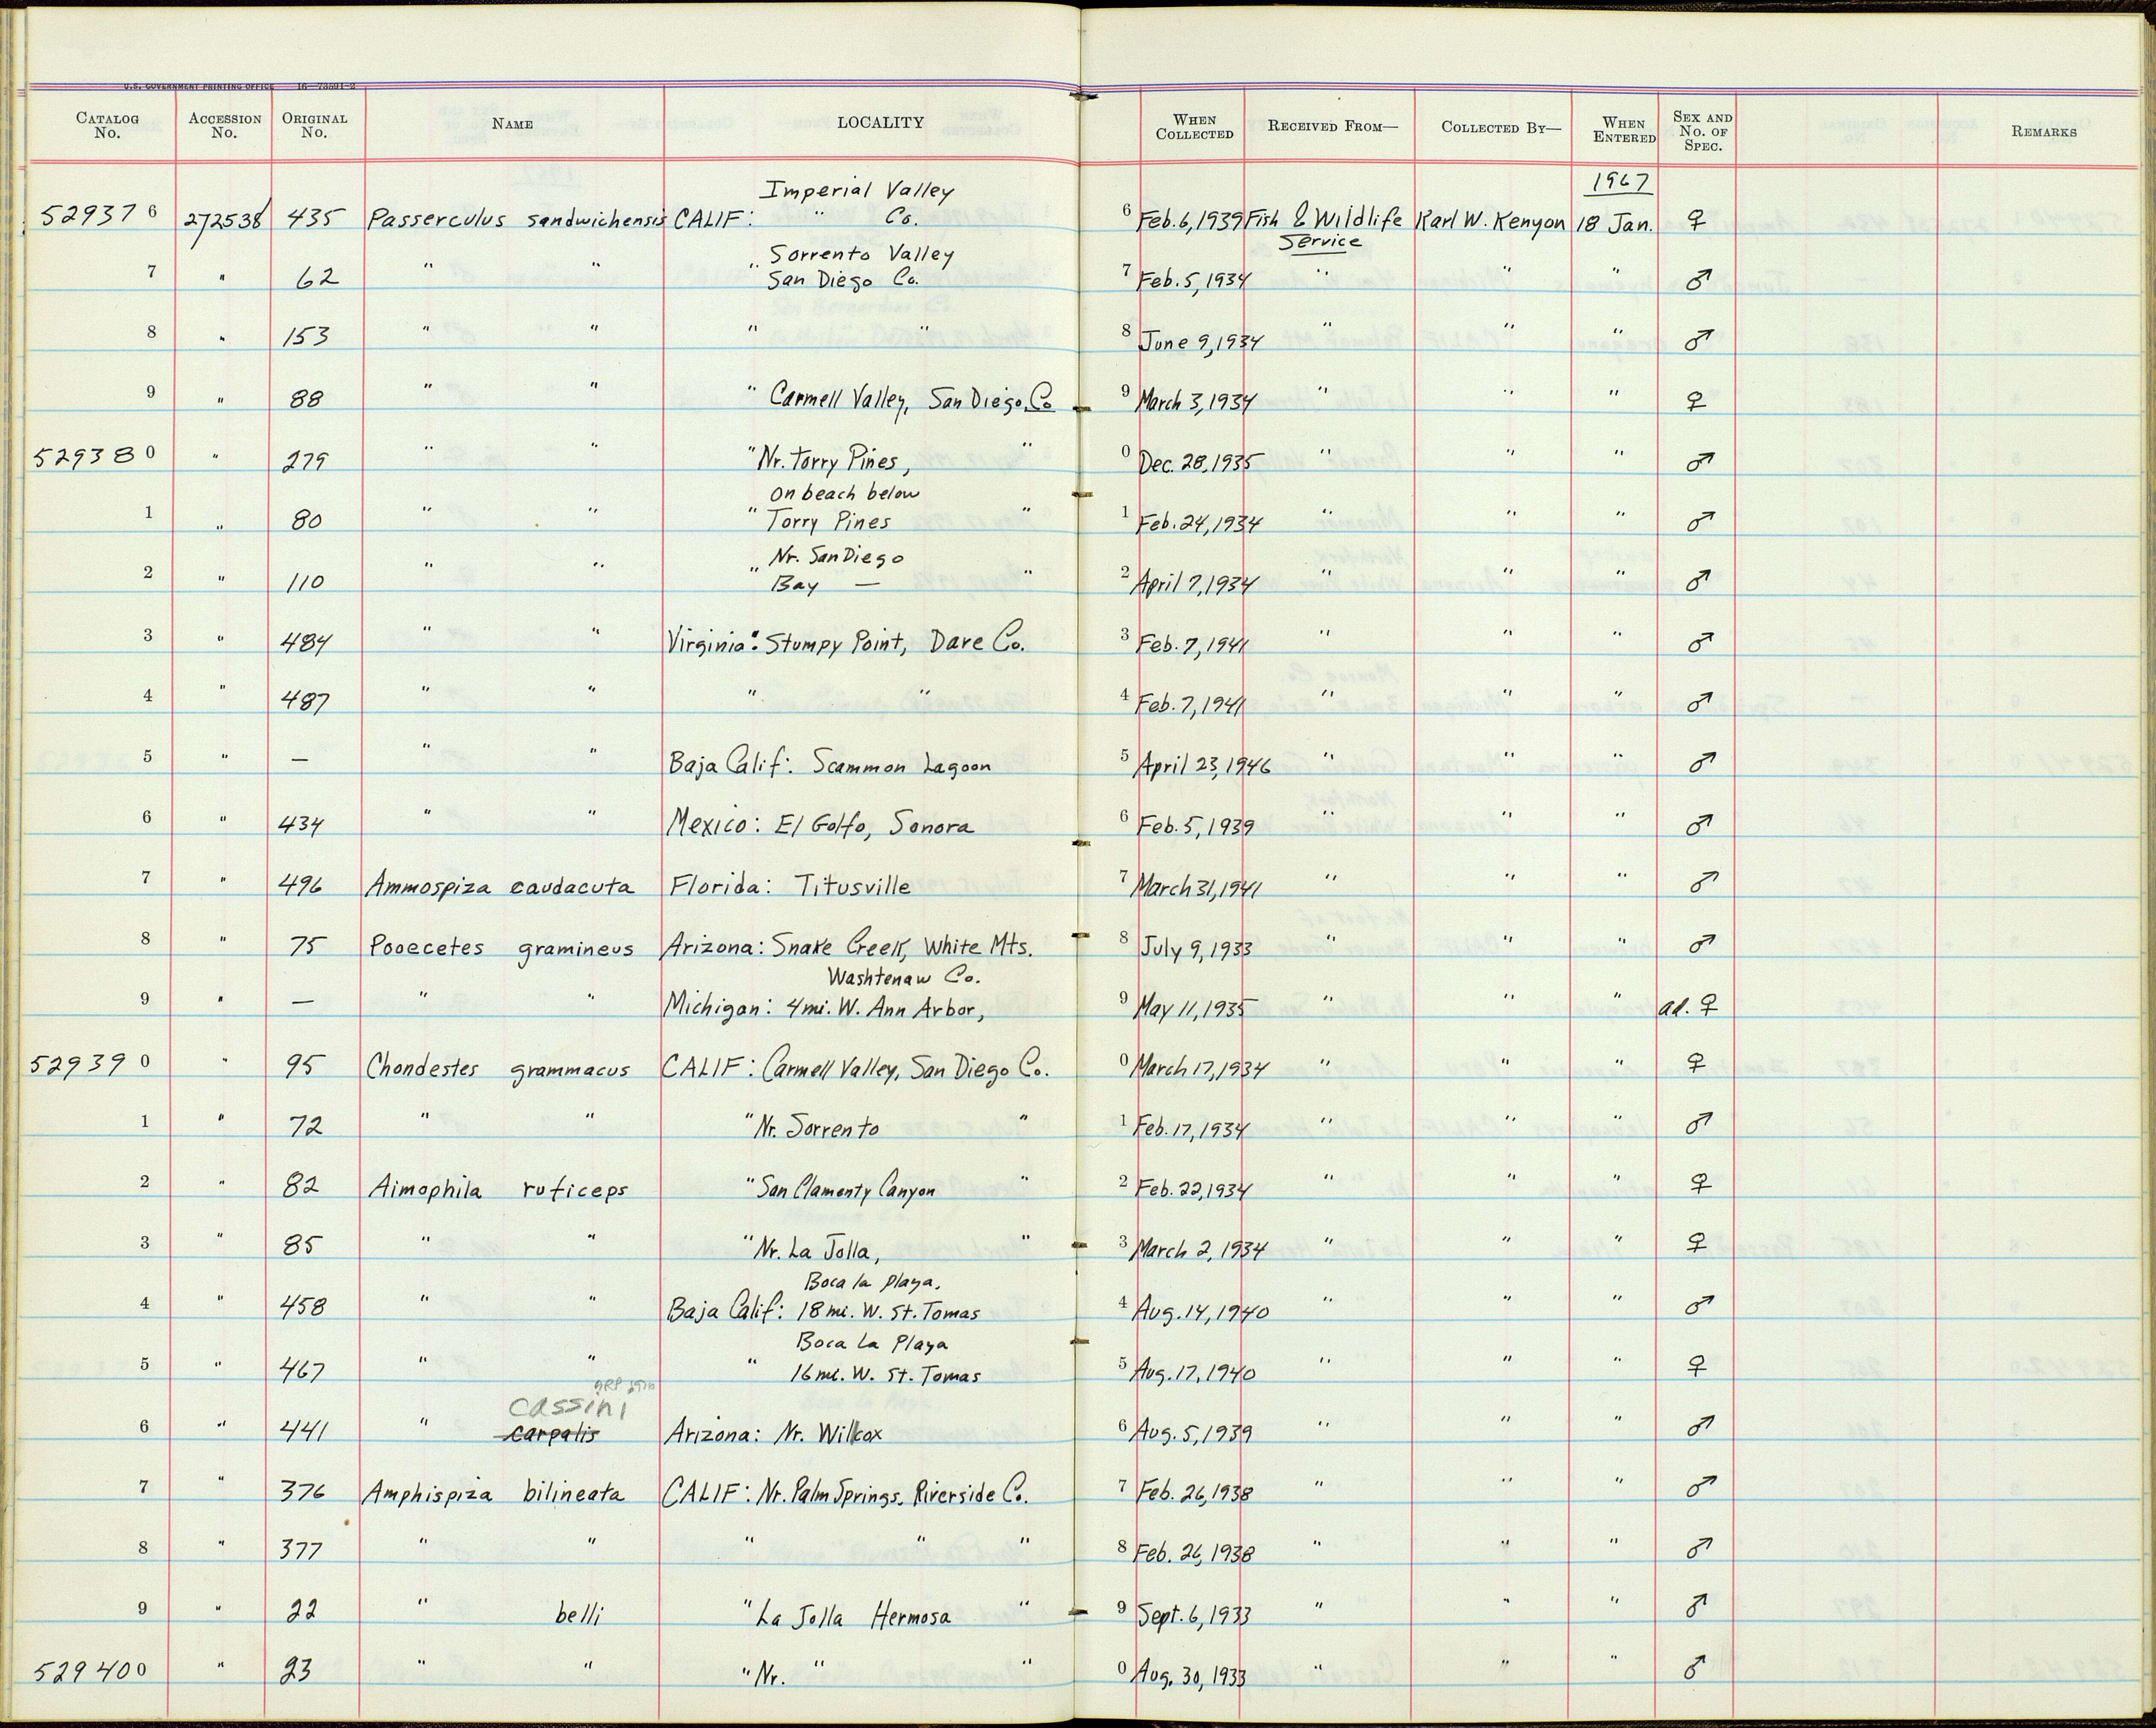 U.S. GOVERNMENT PRINTING OFFICE 16—73591-2
CATALOG No. ACCESSION No. ORIGINAL No. NAME LOCALITY WHEN COLLECTED RECEIVED FROM— COLLECTED BY— WHEN ENTERED SEX AND No. OF SPEC. REMARKS
Imperial Valley 1967
529376 272538 435 Passerculus sandwichensis CALIF: " Co. 6 Feb. 6, 1939 Fish & Wildlife Service Karl W. Kenyon 18 Jan. ♀
Sorrento Valley
7 " 62 " " " San Diego Co. 7 Feb. 5, 1934 " " " ♂
8 " 153 " " " " 8 June 9, 1934 " " " ♂
9 " 88 " " " Carmell Valley, San Diego, Co 9 March 3, 1934 " " " ♀
529380 " 279 " " " Nr. Torry Pines, " 0 Dec. 28, 1935 " " " ♂
on beach below
1 " 80 " " " Torry Pines " 1 Feb. 24, 1934 " " " ♂
Nr. San Diego
2 " 110 " " " Bay — " 2 April 7, 1934 " " " ♂
3 " 484 " " Virginia: Stumpy Point, Dare Co. 3 Feb. 7, 1941 " " " ♂
4 " 487 " " " " 4 Feb. 7, 1941 " " " ♂
5 " — " " Baja Calif: Scammon Lagoon 5 April 23, 1946 " " " ♂
6 " 434 " " Mexico: El Golfo, Sonora 6 Feb. 5, 1939 " " " ♂
7 " 496 Ammospiza caudacuta Florida: Titusville 7 March 31, 1941 " " " ♂
8 " 75 Pooecetes gramineus Arizona: Snake Creek, White Mts. 8 July 9, 1933 " " " ♂
Washtenaw Co.
9 " — " " Michigan: 4mi. W. Ann Arbor, 9 May 11, 1935 " " " ad. ♀
529390 " 95 Chondestes grammacus CALIF: Carmell Valley, San Diego Co. 0 March 17, 1934 " " " ♀
1 " 72 " " " Nr. Sorrento " 1 Feb. 17, 1934 " " " ♂
2 " 82 Aimophila ruficeps " San Clamenty Canyon " 2 Feb. 22, 1934 " " " ♀
3 " 85 " " " Nr. La Jolla, " 3 March 2, 1934 " " " ♀
Boca la playa,
4 " 458 " " Baja Calif: 18 mi. W. St. Tomas 4 Aug. 14, 1940 " " " ♂
Boca La Playa
5 " 467 " " " 16 mi. W. St. Tomas 5 Aug. 17, 1940 " " " ♀
cassini
6 " 441 " carpalis Arizona: Nr. Willcox 6 Aug. 5, 1939 " " " ♂
7 " 376 Amphispiza bilineata CALIF: Nr. Palm Springs, Riverside Co. 7 Feb. 26, 1938 " " " ♂
8 " 377 " " " " " 8 Feb. 26, 1938 " " " ♂
9 " 22 " belli " La Jolla Hermosa " 9 Sept. 6, 1933 " " " ♂
529400 " 23 " " " Nr. " " 0 Aug. 30, 1933 " " " ♂